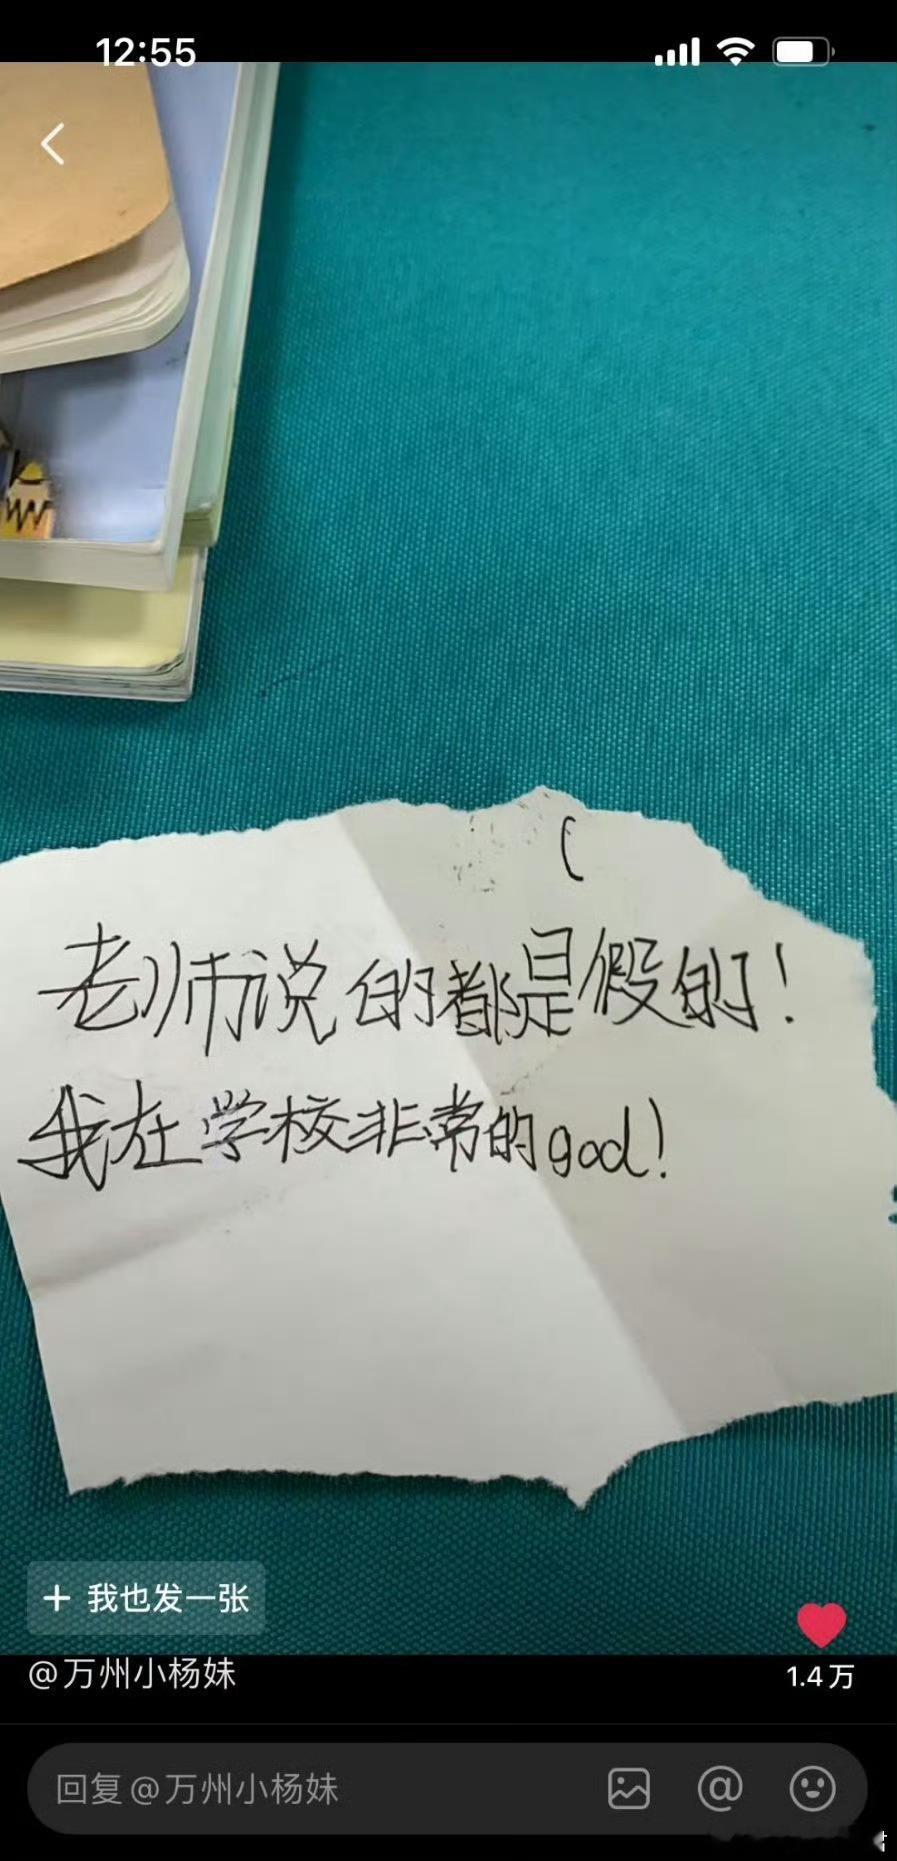 12:55
(
老师说的都是假的!
我在学校非常的god!
+ 我也发一张
@万州小杨妹
1.4万
回复@万州小杨妹